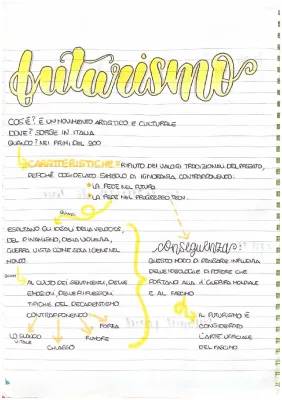 futurismo
COS'È? È UN MOVIMENTO ARTISTICO E CULTURALE
DOVE? SORGE IN ITALIA
QUANDO? NEI PRIMI DEL 900
CARATTERISTICHE RIFIUTO DEI VALORI TRADIZIONALI DEL PASSATO,
PERCHÉ CONSIDERATO SIMBOLO DI IGNORANZA, CONTRAPPONENDO:
LA FEDE NEL FUTURO
LA FEDE NEL PROGRESSO TECN.
QUINDI
ESALTANO GLI IDEALI DELLA VELOCITÀ,
DEL DINAMISMO, DELLA VIOLENZA,
GUERRA VISTA COME SOLA IGIENE NEL
MONDO
AL CULTO DEI SENTIMENTI, DELLE
EMOZIONI, DELLE RIFLESSIONI
TIPICHE DEL DECADENTISMO
CONTRAPPONENDO
LO SLANCIO
VITALE
CHIASSO
RUMORE
FORZA
conseguenza:
QUESTO MODO DI PENSARE INFLUENZA
DELLE IDEOLOGIE DI POTERE CHE
PORTANO ALLA 1ª GUERRA MONDIALE
E AL FASCISMO
IL FUTURISMO È
CONSIDERATO
L'ARTE UFFICIALE
DEL FASCISMO